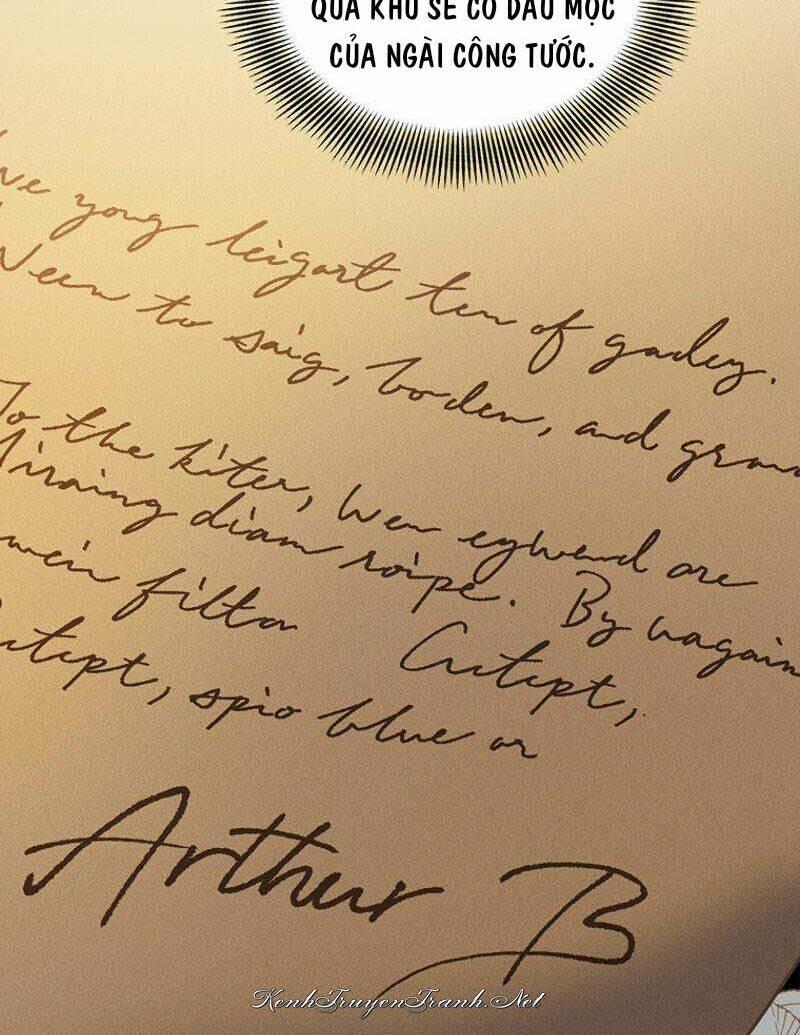 QUÁ KHỨ SẼ CÓ DẤU MỘC
CỦA NGÀI CÔNG TƯỚC.
yong leigart ten of gadey.
Neen to saig, boden, and
To the kiter, Wen eghend are
diam roipe. By nagain
filton Cutept,
spio blue or
Arthur B
KenhTruyenTranh.Net